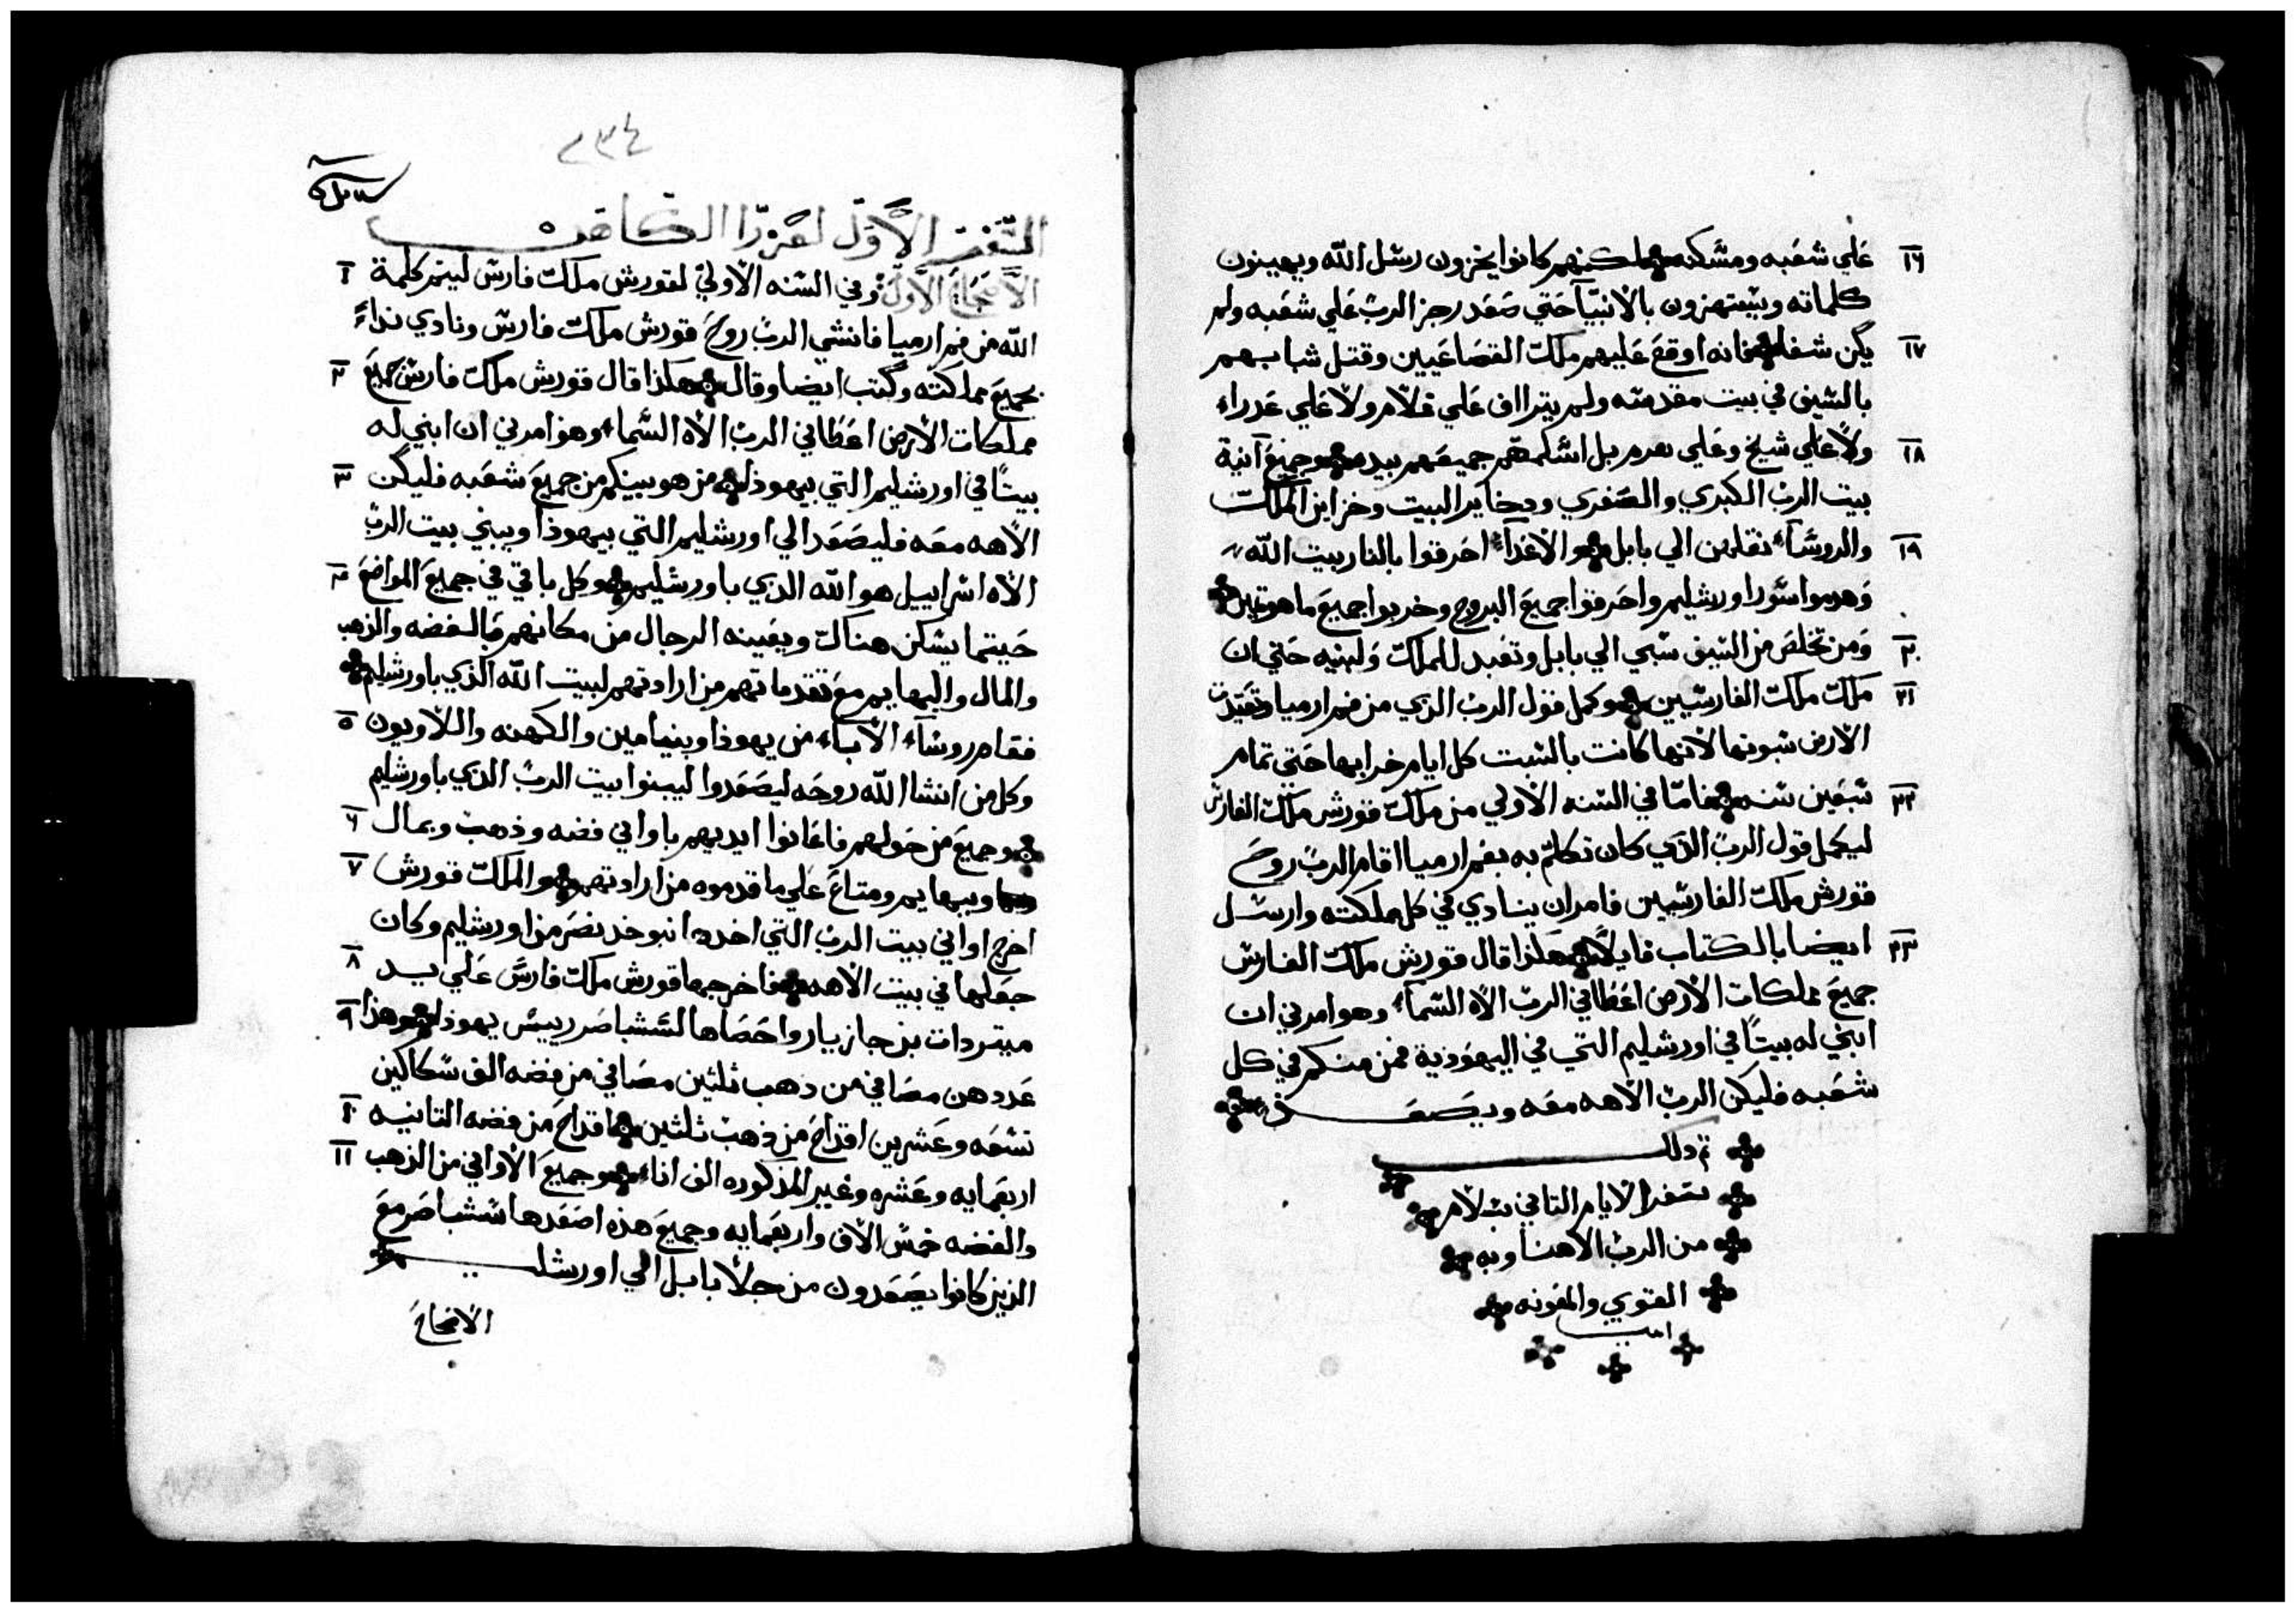 ١٦ علي شعبه ومسكنه لكنهم كانوا يخزون رسل الله ويهينون
كلماته ويستهزون بالانبيآ حتي صعد رجز الرب علي شعبه ولم
١٧ يكن شفا فانه اوقع عليهم ملك القصاعيين وقتل شبابهم
بالسيف في بيت مقدسه ولم يتراف علي غلام ولا علي عدراء
١٨ ولا علي شيخ وعلي هرم بل اسلمهم جميعهم بيده وجميع آنية
بيت الرب الكبري والصغري ودخاير البيت وخزاين الملك
١٩ والروسآء نقلهن الي بابل والاعدآء احرقوا بالنار بيت الله
وهدموا سور اورشليم واحرقوا جميع البروج وخربوا جميع ما هو تمين
٢٠ ومن تخلص من السيف سبي الي بابل وتعبد للملك ولبنيه حتي ان
٢١ ملك ملك الفارسيين وكمل قول الرب الذي من فم ارميا وتعيدت
الارض سبوتها لانها كانت بالسبت كل ايام خرابها حتي تمام
٢٢ سبعين سنه فامّا في السنه الاولي من ملك قورش ملك الفارس
ليكمل قول الرب الذي كان تكلم به بفم ارميا اقام الرب روح
قورش ملك الفارسيين فامر ان ينادي في كل مملكته وارسل
٢٣ ايضا بالكتاب قايلاً هكذا قال قورش ملك الفارس
جميع مملكات الارض اعطاني الرب الاه السمآء وهو امرني ان
ابني له بيتاً في اورشليم التي في اليهودية فمن منكم في كل
شعبه فليكن الرب الاهه معه ويصعد
تم دلك
سفر الايام التاني بسلام
من الرب الاهنا وبه
القوي والمعونه
امين
٢٣٤
السفر الاوّل لعزرا الكاهن
الاصحاح الاول وفي السنه الاولي لقورش ملك فارس ليتم كلمة ١
الله من فم ارميا فانشي الرب روح قورش ملك فارس ونادي نداءً
بجميع مملكته وكتب ايضا وقال هكذا قال قورش ملك فارس جميع ٢
مملكات الارض اعطاني الرب الاه السماء وهو امرني ان ابني له
بيتاً في اورشليم التي بيهوذا من هو بينكم من جميع شعبه فليكن ٣
الاهه معه فليصعد الي اورشليم التي بيهوذا ويبني بيت الرب
الاه اسراييل هو الله الذي باورشليم وكل باقي في جميع المواضع ٤
حيتما يسكن هناك ويعينه الرجال من مكانهم بالفضه والذهب
والمال والبهايم مع تقدماتهم من ارادتهم لبيت الله الذي باورشليم
فقام روسآء الابآء من يهوذا وبنيامين والكهنه واللاويون ٥
وكل من انشا الله روحه ليصعدوا ليبنوا بيت الرب الذي باورشليم
وجميع من حولهم فاعانوا ايديهم باواني فضه وذهب وبمال ٦
وببهايم ومتاع علي ما قدموه من ارادتهم والملك قورش ٧
اخرج اواني بيت الرب التي اخدها نبوخدنصر من اورشليم وكان
جعلها في بيت الاهه فاخرجها قورش ملك فارس علي يد ٨
ميتردات بن جازبار واحصاها لسشباصر رييس يهوذا وهذا ٩
عددهن مصافي من دهب ثلثين مصافي من فضه الف سكاكين
تسعه وعشرين اقداح من ذهب ثلثين اقداح من فضه التانيه ١٠
اربعمايه وعشره وغير المذكوره الف اناء وجميع الاواني من الذهب ١١
والفضه خمس الاف واربعمايه وجميع هذه اصعدها سشباصر مع
الذين كانوا يصعدون من جلا بابل الي اورشليم
الاصحاح